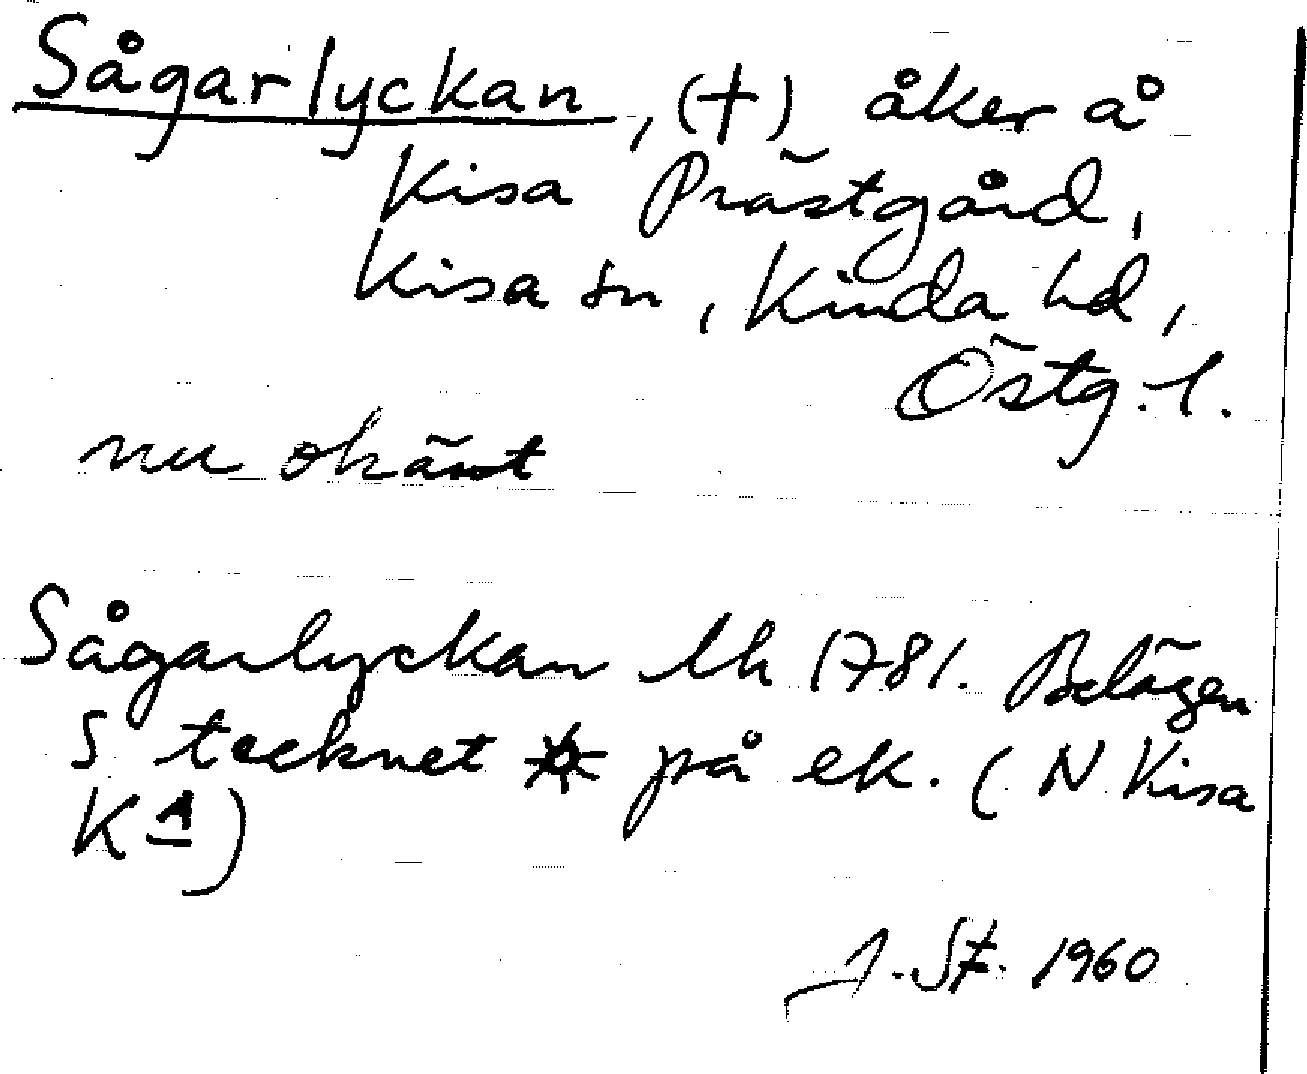 Sågarlyckan, (†) åker å
Kisa Prästgård,
Kisa sn, Kinda hd,
Östg. l.
nu okänt
Sågarlyckan lh 1781. Belägen
S tecknet ☼ på ek. (N Kisa
K 1)
J. St. 1960